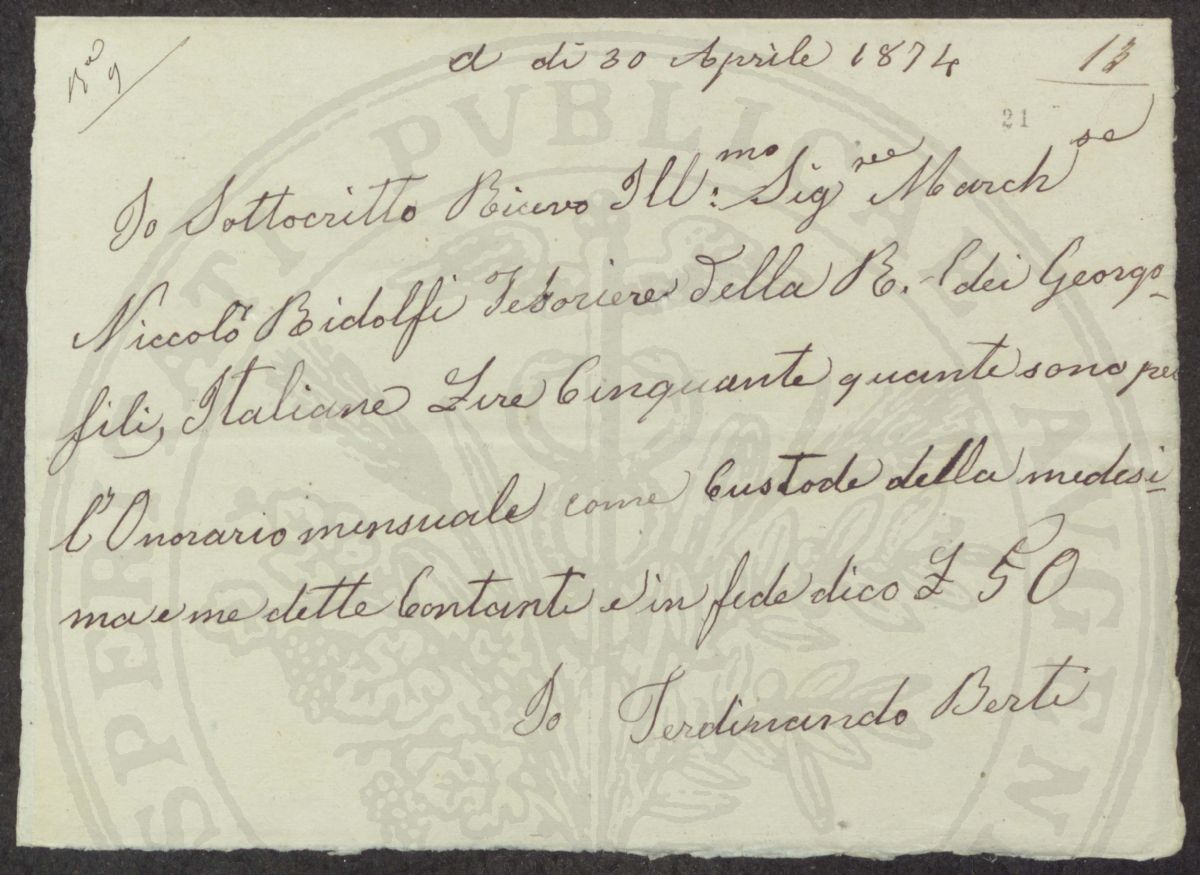 a di 30 Aprile 1874
13
21
Io Sottocritto Ricevo Ill:mo Sigre Marchse
Niccolò Ridolfi Tesoriere della R. dei Georgo-
fili, Italiane Lire Cinquante quante sono per
l'Onorario mensuale come Custode della medesi-
ma e me dette Contanti e in fede dico L 50
Io Ferdinando Berti
PROSPERITATI PUBLICAE AUGENDAE